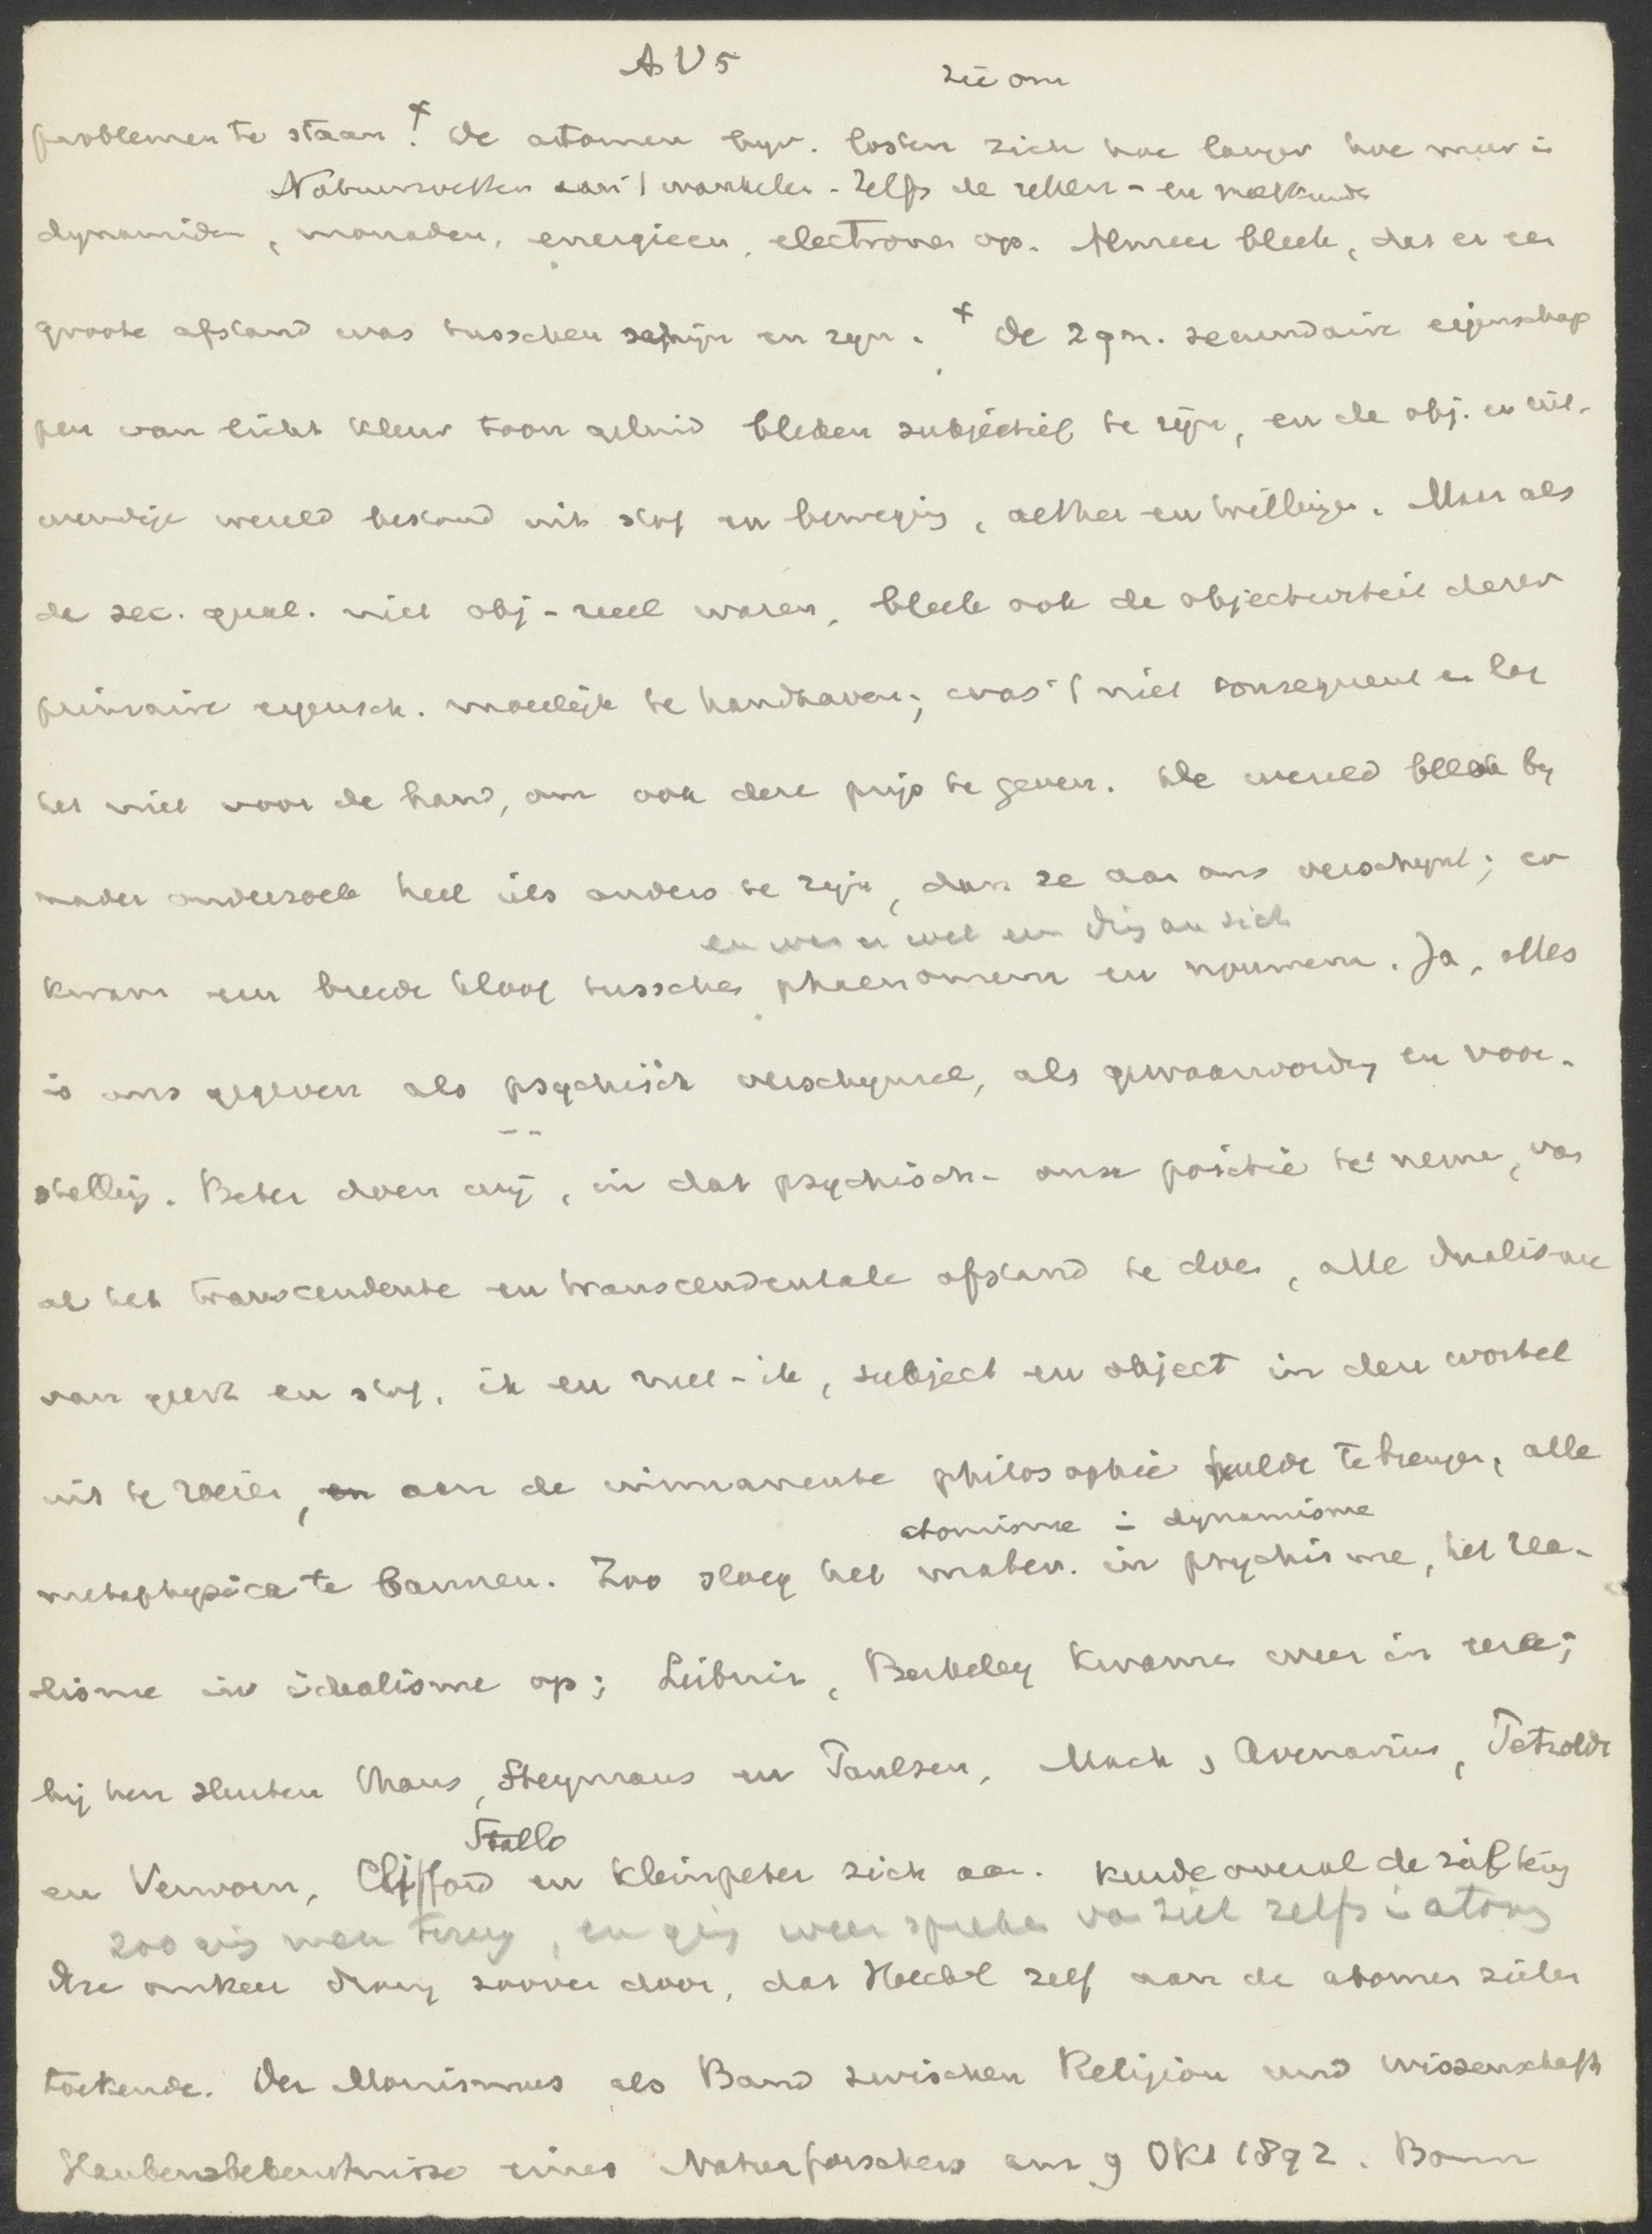 A V 5
zie om
problemen te staan! + De atomen bijv. losten zich hoe langer hoe meer in
Natuurwetten aan 't wankelen - Zelfs de reken- en meetkunde
dynamiden, monaden, energieen, electronen op. Almeer bleek, dat er een
groote afstand was tusschen schijn en zijn. + De zgn. secundaire eigenschap
pen van licht kleur toon geluid bleken subjectief te zijn, en de obj. en uit-
wendige wereld bestond uit stof en beweging, aether en trillingen. Maar als
de sec. qual. niet obj-reeel waren, bleek ook de objectiviteit dezer
primaire eigensch. moeilijk te handhaven; was 't niet consequent en lag
het niet voor de hand, om ook deze prijs te geven. De wereld bleek bij
nader onderzoek heel iets anders te zijn, dan ze aan ons verschijnt; er
en was er wel een Ding an sich
kwam een breede kloof tusschen phaenomena en noumena. Ja, alles
is ons gegeven als psychisch verschijnsel, als gewaarwording en voor-
stelling. Beter doen wij, in dat psychisch- onze positie te nemen, van
al het transcendente en transcendentale afstand te doen, alle dualisme
van geest en stof, ik en niet-ik, subject en object in den wortel
uit te roeien, en aan de immanente philosophie hulde te brengen, alle
metaphysica te bannen. Zoo sloeg het mater. in psychisme, het rea-
atomisme in dynamisme
lisme in idealisme op; Leibniz, Berkeley kwamen weer in eere;
bij hen sluiten Mans, Heymans en Paulsen, Mach, Avenarius, Petzoldt
Stallo
en Verworn, Clifford en Kleinpeter zich aan. keerde overal de
zoo ging men terug, en ging weer spreken van ziel zelfs in atoms
Deze omkeer drong zoover door, dat Haeckel zelf aan de atomen zielen
toekende. Der Monismus als Band zwischen Religion und Wissenschaft
Glaubensbekenntnisse eines Naturforschers am 9 Okt 1892. Bonn